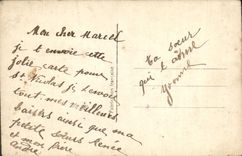 Mon cher Marcel
je t envoie cette
jolie carte pour
st Nicolas je t envoie
tout mes meilleurs
baisers ainsi que ma
petite sœurs Renée
et mon frère
André
ta sœur
qui t aime
Yvonne